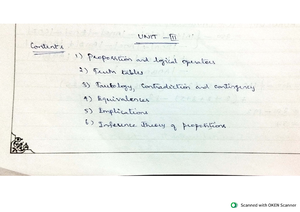 UNIT - III
Contents
1) Proposition and logical operators
2) Truth tables
3) Tautology, Contradiction and contingency
4) Equivalences
5) Implications
6) Inference theory of propositions
Scanned with OKEN Scanner